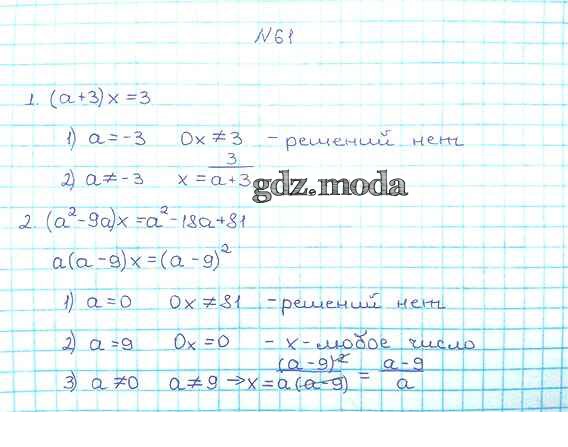 №61
1. (a+3)x=3
1) a=-3 0x≠3 - решений нет
2) a≠-3 x=3/(a+3)
gdz.moda
2. (a²-9a)x=a²-18a+81
a(a-9)x=(a-9)²
1) a=0 0x≠81 - решений нет
2) a=9 0x=0 - x-любое число
3) a≠0 a≠9 → x=(a-9)²/a(a-9) = (a-9)/a